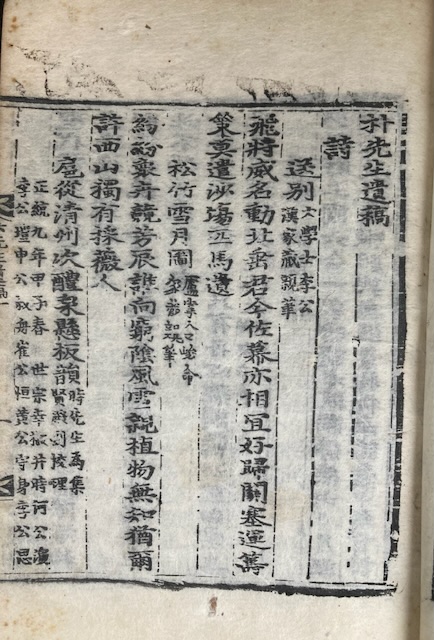 朴先生遺稿
詩
送別大學士李公
漢家藏親筆
飛將威名動北垂君今佐幕亦相宜好歸關塞運籌
策莫遣沙場匹馬遺
松竹雪月圖
紛紛衆卉競芳辰誰向窮陰風雪親植物無知猶爾
許西山獨有採薇人
扈從清州次醴泉懸板韻時先生爲集
賢殿副校理
正統九年甲子春 世宗幸椒井時河公演
李公塏申公叔舟崔公恒黃公守身李公思